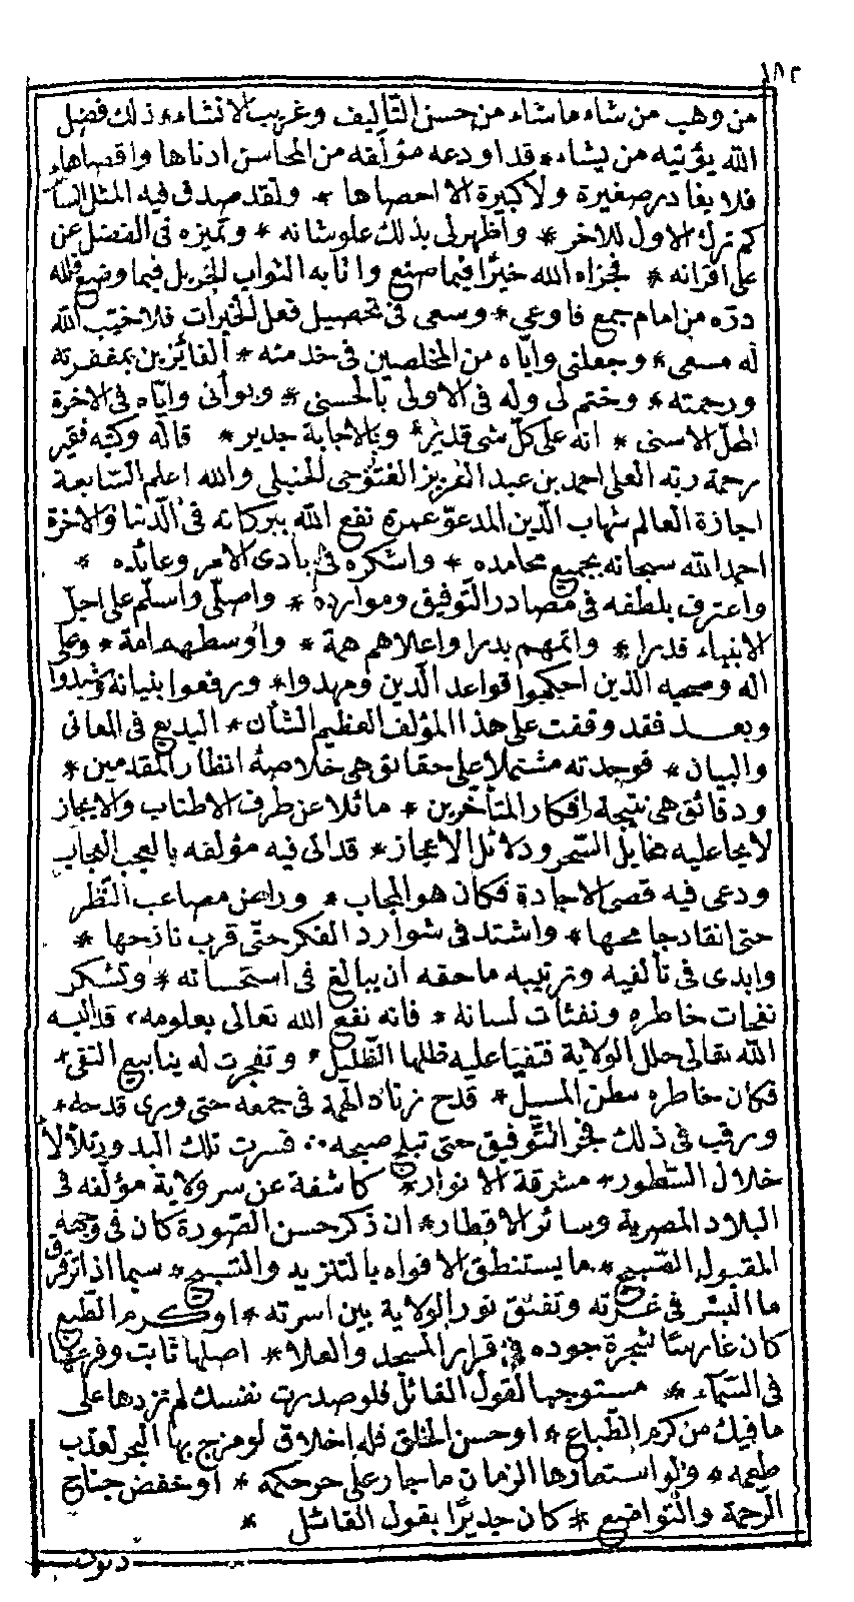 ١٨٢
من وهب من شاء ما شاء من حسن التأليف وغريب الانشاء * ذلك فضل
الله يؤتيه من يشاء * قد اودعه مؤلفه من المحاسن ادناها واقصاها *
فلا يغادر صغيرة ولا كبيرة الا احصاها * ولقد صدق فيه المثل السائر
كم ترك الاول للاخر * واظهر لى بذلك علو شانه * وتميزه فى الفضل عن
على اقرانه * فجزاه الله خيرًا فيما صنع واثابه الثواب الجزيل فيما وضع فلله
درّه من امام جمع فاوعى * وسعى فى تحصيل فعل الخيرات فلا خيّب الله
له مسعى * وجعلنى وايّاه من المخلصين فى خدمته * الفائزين بمغفرته
ورحمته * وختم لى وله فى الاولى بالحسنى * وبوأنى وايّاه فى الاخرة
المحلّ الاسنى * انه على كلّ شى قدير * وبالاجابة جدير * قاله وكتبه فقير
رحمة ربّه العلى احمد بن عبد العزيز الفتوحى الحنبلى والله اعلم السّابعة
اجازة العالم شهاب الدّين المدعوّ عميرة نفع الله ببركاته فى الدّنيا والاخرة
احمد الله سبحانه بجميع محامده * واشكره فى بادى الامر وعائده *
واعترف بلطفه فى مصادر التّوفيق وموارده * واصلّى واسلّم على اجلّ
الانبياء قدرا * واتمهم بدرا واعلاهم همة * واوسطهم امة * وعلى
اله وصحبه الذين احكموا قواعد الدّين ومهدوا * ورفعوا بنيانه وشيدوا
وبعد فقد وقفت على هذا المؤلف العظيم الشأن * البديع فى المعانى
والبيان * فوجدته مشتملا على حقائق هى خلاصة انظار المتقدمين *
ودقائق هى نتيجة افكار المتأخرين * مائلا عن طرف الاطناب والايجاز
لايحا عليه مخايل السّحر ودلائل الاعجاز * قد اتى فيه مؤلفه بالعجب العجاب
ودعى فيه قصى الاجادة فكان هو المجاب * وراض مصاعب النّظر
حتى انقاد جامحها * واشتد فى شوارد الفكر حتّى قرب نازحها *
وابدى فى تألفيه وترتيبه ما حقه ان يبالغ فى استحسانه * وتشكر
نفحات خاطره ونفثات لسانه * فانه نفع الله تعالى بعلومه، قد البسه
الله تعالى حلل الولاية فتفيّا عليه ظلها الظّليل * وتفجرت له ينابيع التقى *
فكان خاطره ببطن المسيل * قدح زناد الهمة فى جمعه حتى ورى قدحه *
ورقب فى ذلك فجر التّوفيق حتى تبلج صبحه ∴ فسرت تلك البدور تلألأ
خلال السّطور * مشرقة الانوار * كاشفة عن سر ولاية مؤلّفه فى
البلاد المصرية وسائر الاقطار * ان ذكر حسن الصّورة كان فى وجهه
المقبول الصّبيح * ما يستنطق الافواه بالتنزيه والتسبيح * سيما اذا ترقرق
ماء البشر فى غرّته وتفتق نور الولاية بين اسرته * او كرم الطّبع
كان غارسا لشجرة جوده فى قرار المجد والعلا * اصلها ثابت وفرعها
فى السّماء * مستوجبا لقول القائل فلو صورت نفسك لم تزدها على
ما فيك من كرم الطّباع * او حسن الخلق فله اخلاق لو مزج بها البحر لعذب
طعمه * ولو استعارها الزمان ما جار على حر حكمه * او خفض جناح
الرّحمة والتّواضع * كان جديرًا بقول القائل *
دنوت